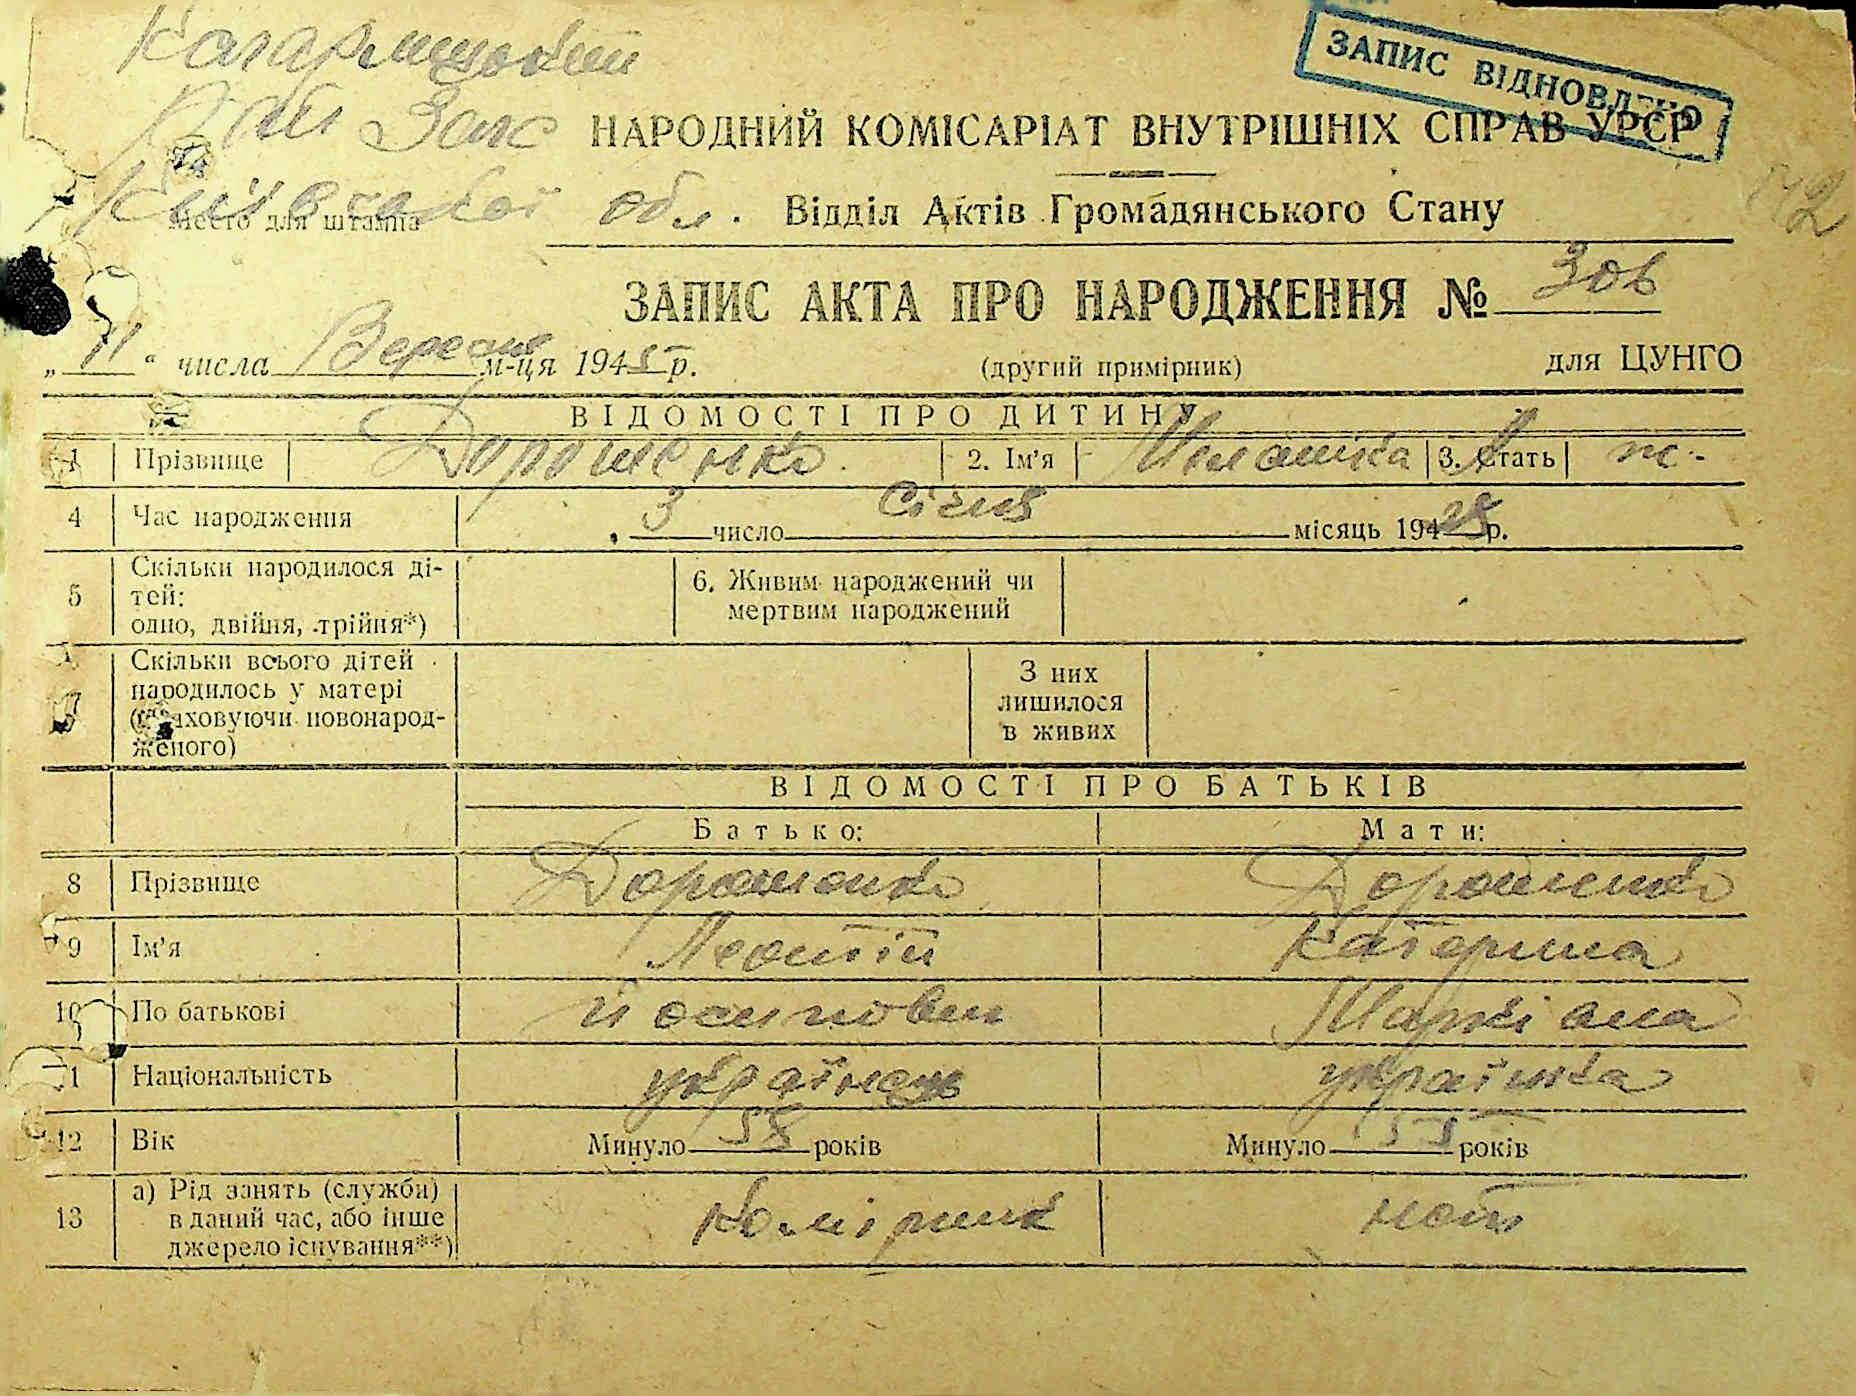 Кагарлицький
Рай Загс
ЗАПИС ВІДНОВЛЕНО
НАРОДНИЙ КОМІСАРІАТ ВНУТРІШНІХ СПРАВ УРСР
Київської обл.
Место для штампа
Відділ Актів Громадянського Стану
142
ЗАПИС АКТА ПРО НАРОДЖЕННЯ № 306
„11“ числа Вересня м-ця 1945 р. (другий примірник) для ЦУНГО
ВІДОМОСТІ ПРО ДИТИНУ
1 Прізвище Дорошенко 2. Ім’я Мелашка 3. Стать ж.
4 Час народження 3 число Січня місяць 1928 р.
5 Скільки народилося ді-
тей:
одно, двійня, трійня*)
6. Живим народжений чи
мертвим народжений
7 Скільки всього дітей
народилось у матері
(враховуючи новонарод-
женого)
З них
лишилося
в живих
ВІДОМОСТІ ПРО БАТЬКІВ
Батько: Мати:
8 Прізвище Дорошенко Дорошенко
9 Ім’я Леонтій Катерина
10 По батькові Йосипович Маркіана
11 Національність українець українка
12 Вік Минуло 58 років Минуло 55 років
13 а) Рід занять (служби)
в даний час, або інше
джерело існування**)
комірник нет